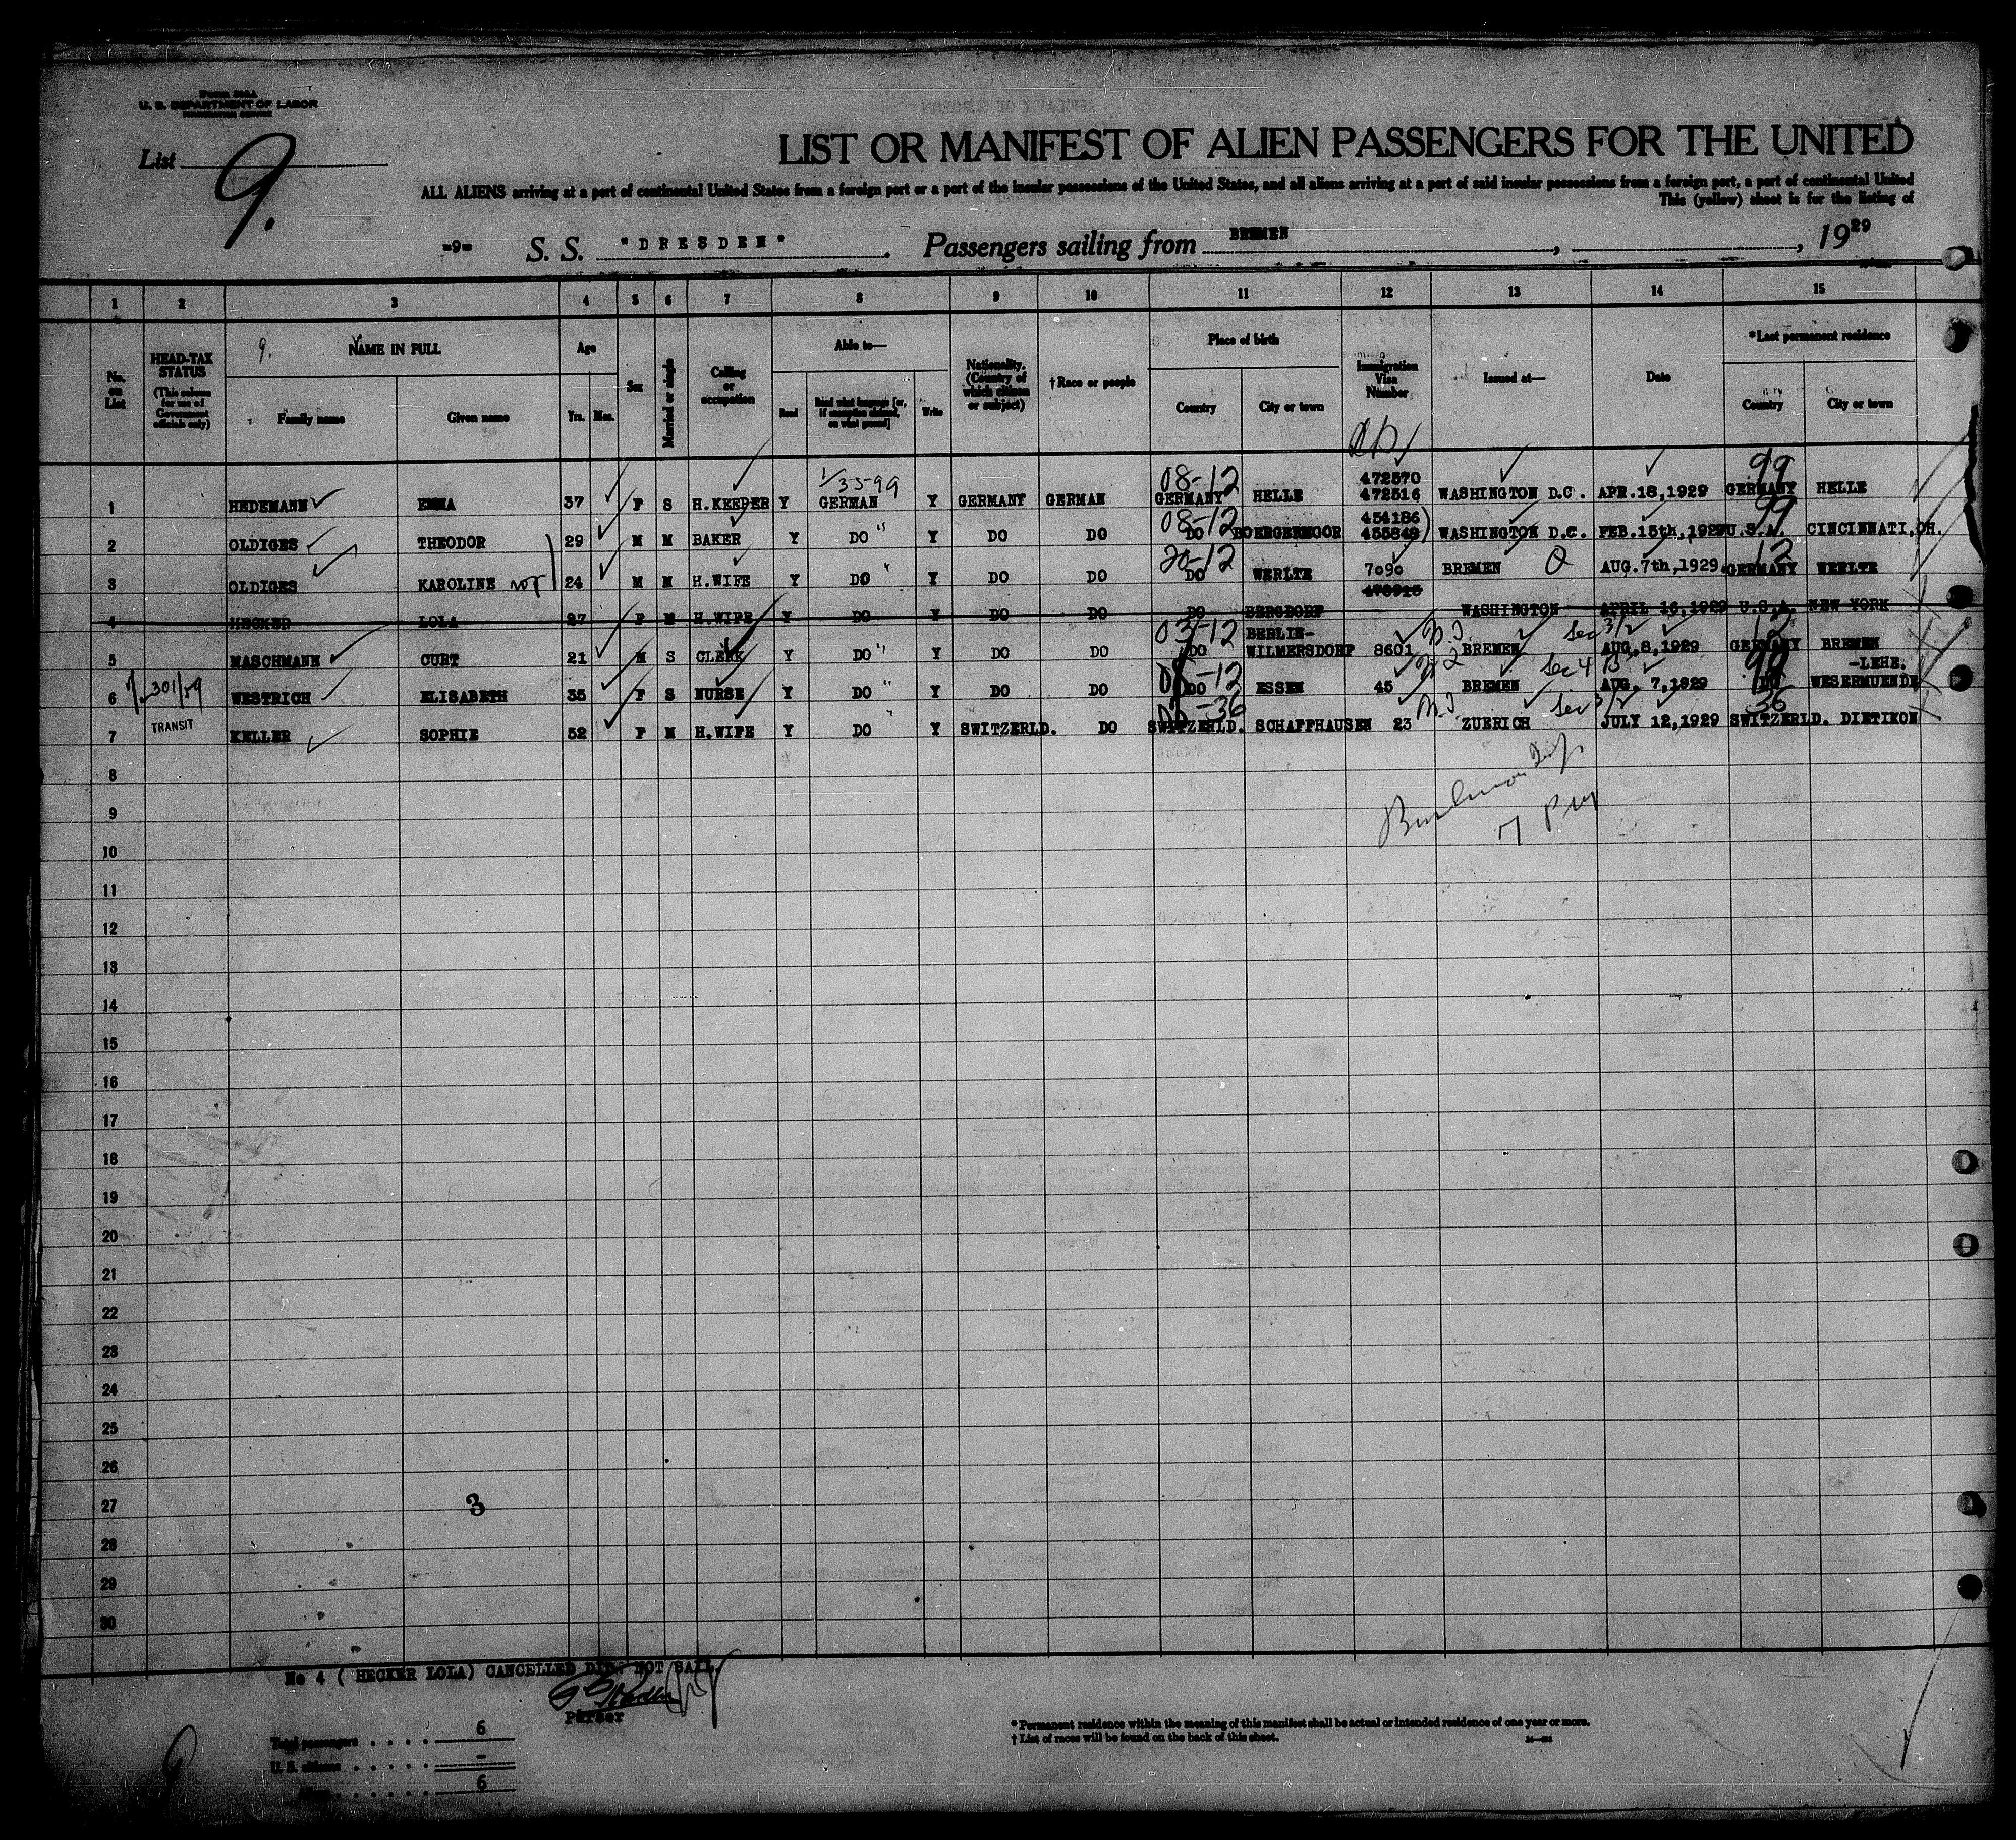 U. S. DEPARTMENT OF LABOR
List 9.
LIST OR MANIFEST OF ALIEN PASSENGERS FOR THE UNITED
ALL ALIENS arriving at a port of continental United States from a foreign port or a port of the insular possessions of the United States, and all aliens arriving at a port of said insular possessions from a foreign port, a port of continental United
This (yellow) sheet is for the listing of
-9- S. S. "DRESDEN". Passengers sailing from BREMEN , , 1929
1 2 3 4 5 6 7 8 9 10 11 12 13 14 15
No. on List
HEAD-TAX STATUS (This column for use of Government officials only)
9. NAME IN FULL
Family name Given name
Age
Yrs. Mos.
Sex
Married or single
Calling or occupation
Able to—
Read Read what language [or, if exemption claimed, on what ground] Write
Nationality. (Country of which citizen or subject)
† Race or people
Place of birth
Country City or town
Immigration Visa Number
Issued at—
Date
* Last permanent residence
Country City or town
1 HEDEMANN EMMA 37 F S H.KEEPER Y 33-99 GERMAN Y GERMANY GERMAN 08-12 GERMANY HELLE 472570 472516 WASHINGTON D.C. APR.18,1929 99 GERMANY HELLE
2 OLDIGES THEODOR 29 M M BAKER Y DO " Y DO DO 08-12 DO BOERGERMOOR 454186 455848 WASHINGTON D.C. FEB.15th,1929 99 U.S.A. CINCINNATI,OH.
3 OLDIGES KAROLINE 24 M M H.WIFE Y DO " Y DO DO 20-12 DO WERLTE 7090 BREMEN AUG.7th,1929. 12 GERMANY WERLTE
4 HECKER LOLA 27 F M H.WIFE Y DO Y DO DO DO BERGDORF WASHINGTON APRIL 16,1929 U.S.A. NEW YORK
5 MASCHMANN CURT 21 M S CLERK Y DO " Y DO DO 03-12 DO BERLIN-WILMERSDORF 8601 BREMEN Sec 3/2 AUG.8,1929 12 GERMANY BREMEN
6 301/59 WESTRICH ELISABETH 35 F S NURSE Y DO " Y DO DO 08-12 DO ESSEN 45 BREMEN Sec 4 B AUG. 7,1929 99 -LEHE. WESERMUENDE
7 TRANSIT KELLER SOPHIE 52 F M H.WIFE Y DO " Y SWITZERLD. DO 36 SWITZERLD. SCHAFFHAUSEN 23 ZUERICH Sec 3/2 JULY 12,1929 36 SWITZERLD. DIETIKON
8
9
10
11
12
13
14
15
16
17
18
19
20
21
22
23
24
25
26
27 3
28
29
30
No 4 ( HECKER LOLA) CANCELLED DID NOT SAIL.
Purser
Total passengers . . . . 6
U. S. citizens . . . . . -
Aliens . . . . . . 6
* Permanent residence within the meaning of this manifest shall be actual or intended residence of one year or more.
† List of races will be found on the back of this sheet.
9